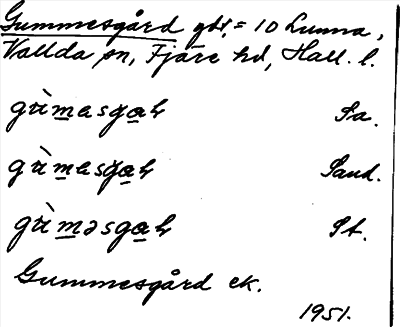 Gummesgård gdr, = 10 Lunna,
Vallda sn, Fjäre hd, Hall. l.
gùmasgaɦ Sa.
gùmasgaɦ Sand.
gùməsgaɦ St.
Gummesgård ek.
1951.